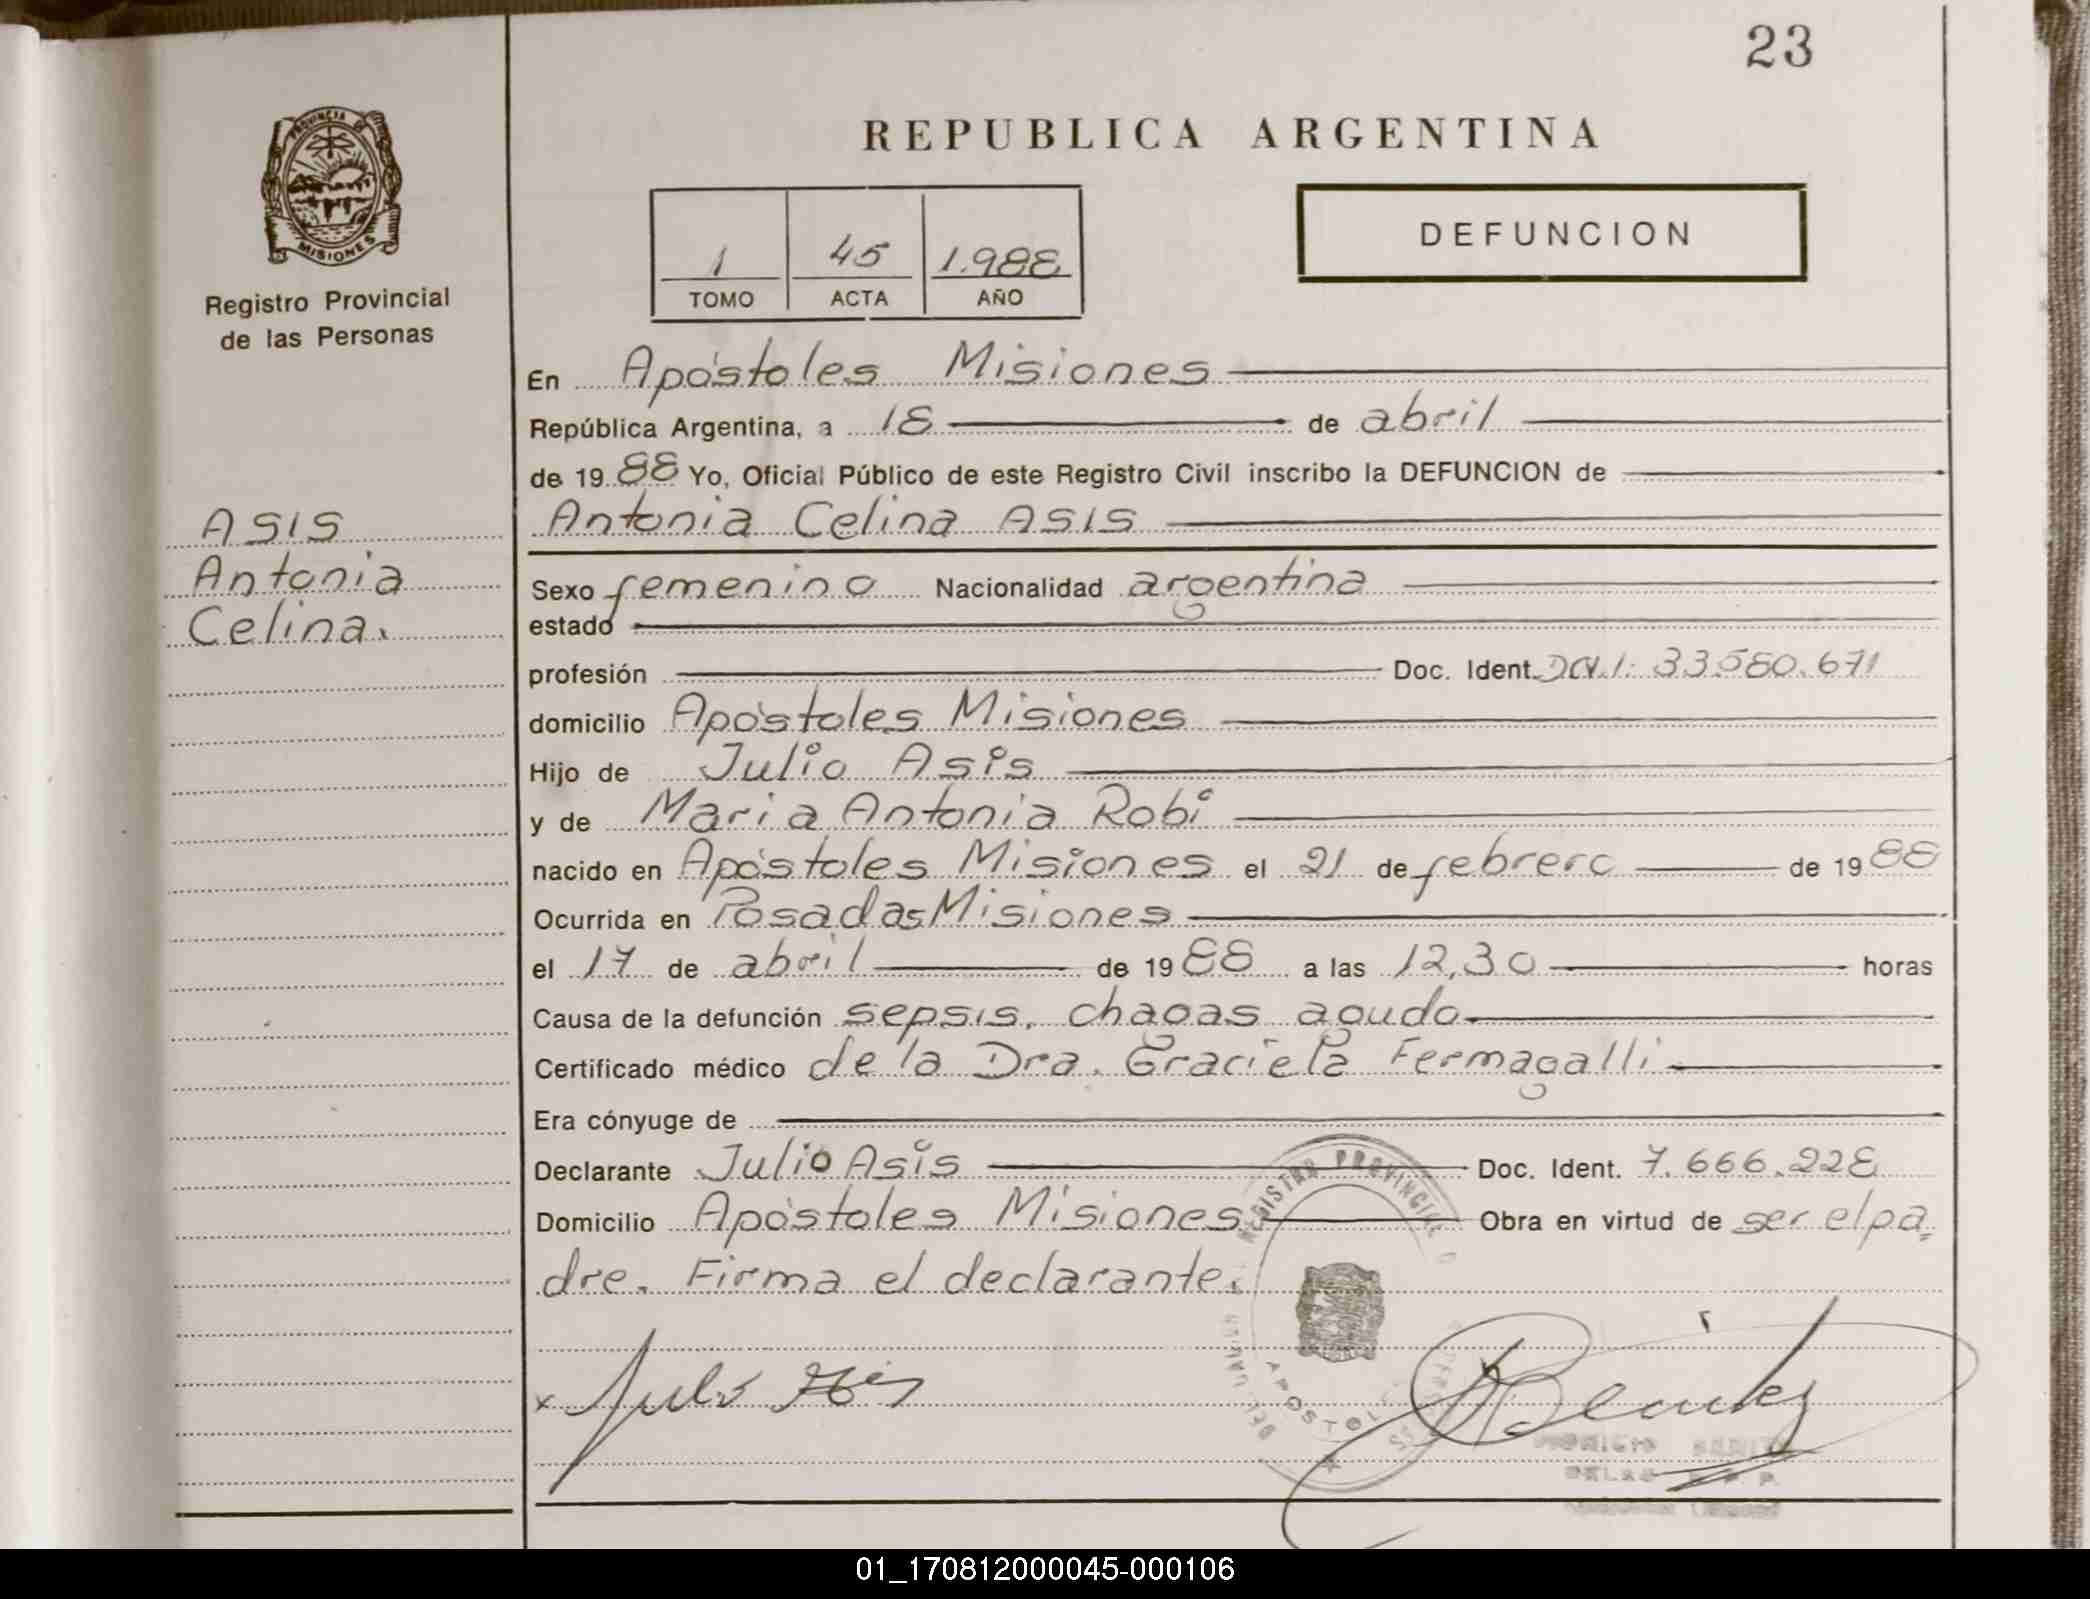 23
PROVINCIA DE
MISIONES
Registro Provincial
de las Personas
REPUBLICA ARGENTINA
1 45 1.988
TOMO ACTA AÑO
DEFUNCION
En Apóstoles Misiones
República Argentina, a 18 de abril
de 19 88 Yo, Oficial Público de este Registro Civil inscribo la DEFUNCION de
Antonia Celina ASIS
ASIS
Antonia
Celina.
Sexo femenino Nacionalidad argentina
estado
profesión Doc. Ident. D.N.I: 33.580.671
domicilio Apóstoles Misiones
Hijo de Julio Asis
y de Maria Antonia Robi
nacido en Apóstoles Misiones el 21 de febrero de 19 88
Ocurrida en Posadas Misiones
el 17 de abril de 19 88 a las 12,30 horas
Causa de la defunción sepsis, chagas agudo
Certificado médico de la Dra. Graciela Fermagalli
Era cónyuge de
Declarante Julio Asis Doc. Ident. 7.666.228
Domicilio Apóstoles Misiones Obra en virtud de ser el pa
dre. Firma el declarante.
REGISTRO PROVINCIAL
x Julio Asis
Benitez
01_170812000045-000106